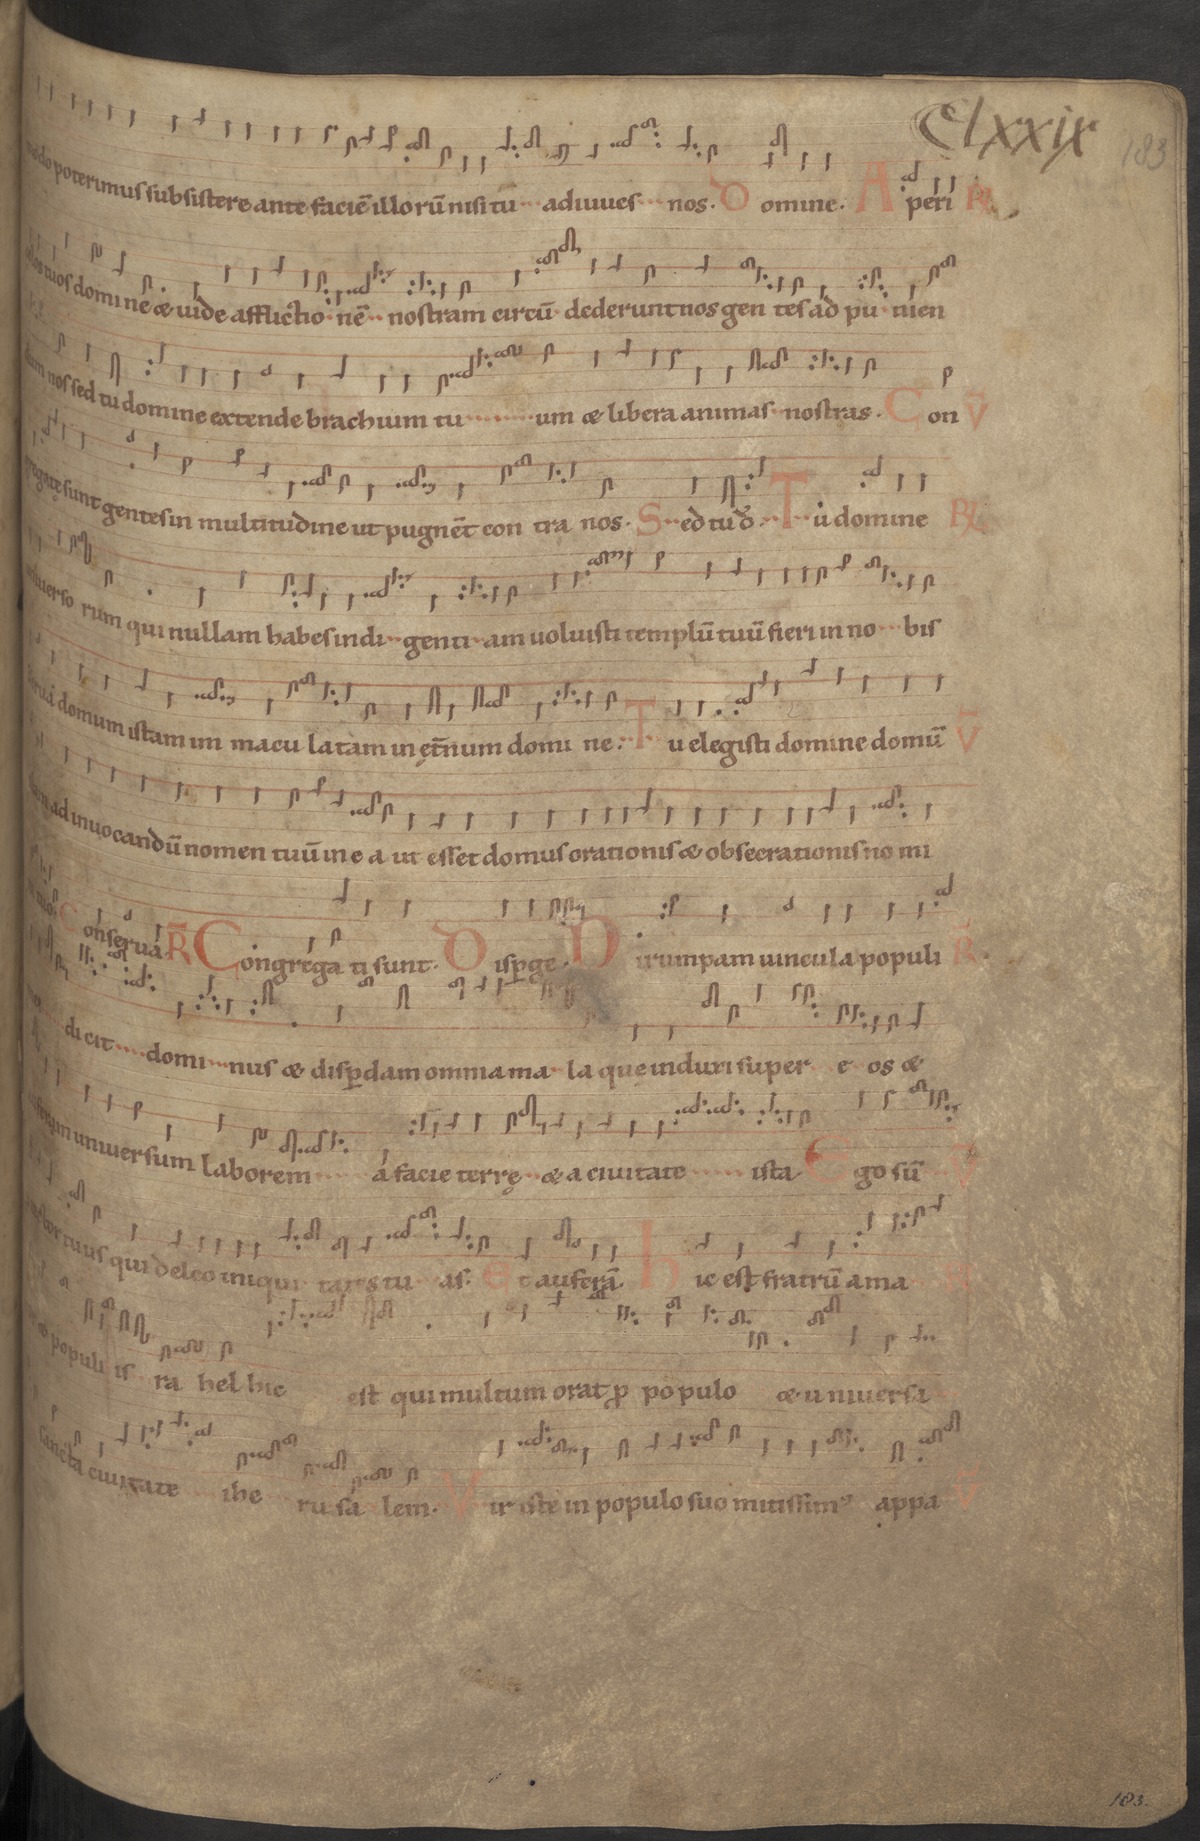 Clxxix
183
modo poterimus subsistere ante faciē illorū nisi tu adiuues nos. D omine. A peri R.
tuos domine & uide afflictio nē nostram circū dederunt nos gen tes ad pu nien
dum nos sed tu domine extende brachium tu um & libera animas nostras. C on V
gregatę sunt gentes in multitudine ut pugnēt con tra nos. S ed tu d̄. T u domine R
uniuerso rum qui nullam habes indi genti am uoluisti templū tuū fieri in no bis
domum istam im macu latam in et̄num domi ne. T u elegisti domine domū V
ad inuocandū nomen tuū in e a ut esset domus orationis & obsecrationis no mi
C onserua R Congrega ti sunt. D isp̱ge. D irumpam uincula populi R.
di cit domi nus & disp̱dam omnia ma la quę induxi super e os &
uniuersum laborem a facie terrę & a ciuitate ista E go sū V
tuus qui deleo iniqui tates tu as. et auferā. h ic est fratrū ama R
populi is ra hel hic est qui multum orat p̱ po pulo & uniuersa
sancta ciuitate ihe ru sa lem. V ir iste in populo suo mitissimꝰ appa V
183.